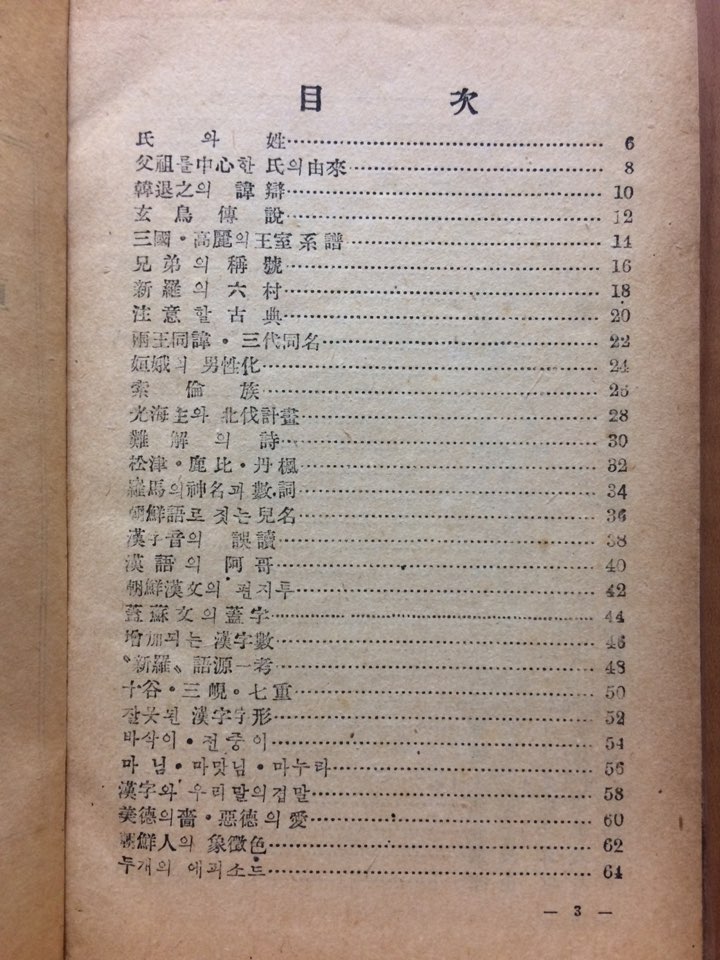 目 次
氏 와 姓 6
父祖를 中心한 氏의 由來 8
韓退之의 諱辯 10
玄鳥傳說 12
三國・高麗의 王室系譜 14
兄弟의 稱號 16
新羅의 六村 18
注意할 古典 20
兩王同諱・三代同名 22
姮娥의 男性化 24
索倫族 26
光海主와 北伐計畫 28
難解의 詩 30
松津・鹿比・丹楓 32
羅馬의 神名과 數詞 34
朝鮮語로 짓는 兒名 36
漢字音의 誤讀 38
漢語의 阿哥 40
朝鮮漢文의 편지투 42
蓋蘇文의 蓋字 44
增加되는 漢字數 46
〝新羅〟語源一考 48
十谷・三峴・七重 50
잘못된 漢字字形 52
바삭이・전중이 54
마님・마맛님・마누라 56
漢字와 우리말의 겹말 58
美德의 嗇・惡德의 愛 60
朝鮮人의 象徵色 62
두개의 에피소드 64
— 3 —